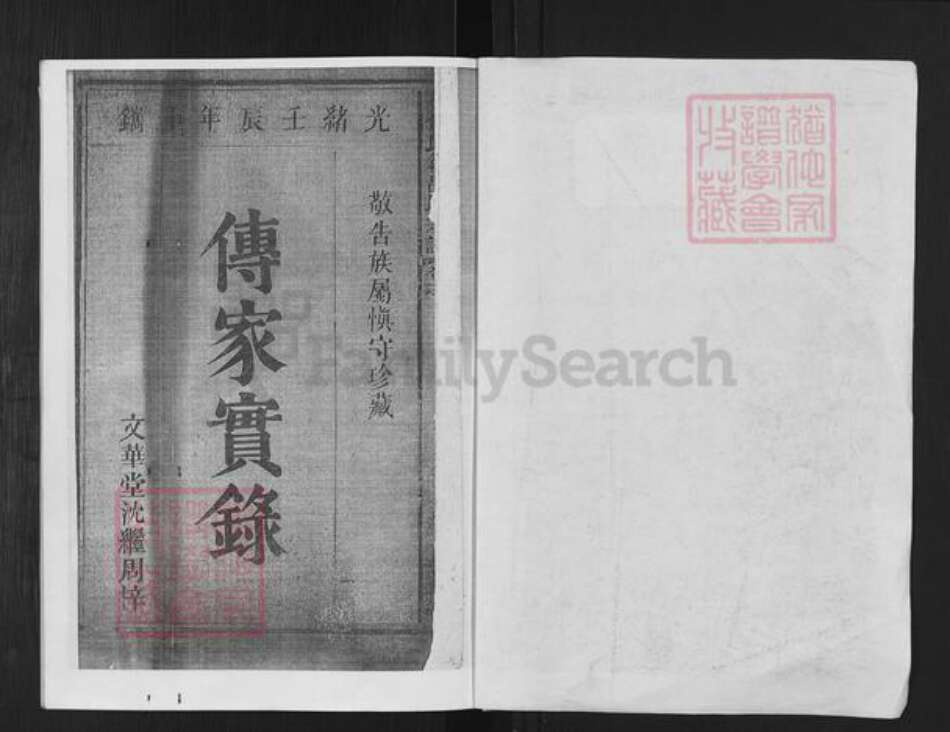 光緒壬辰年重鐫
敬告族屬慎守珍藏
傳家實錄
文華堂沈繼周梓
猶他家
譜學會
收藏
FamilySearch